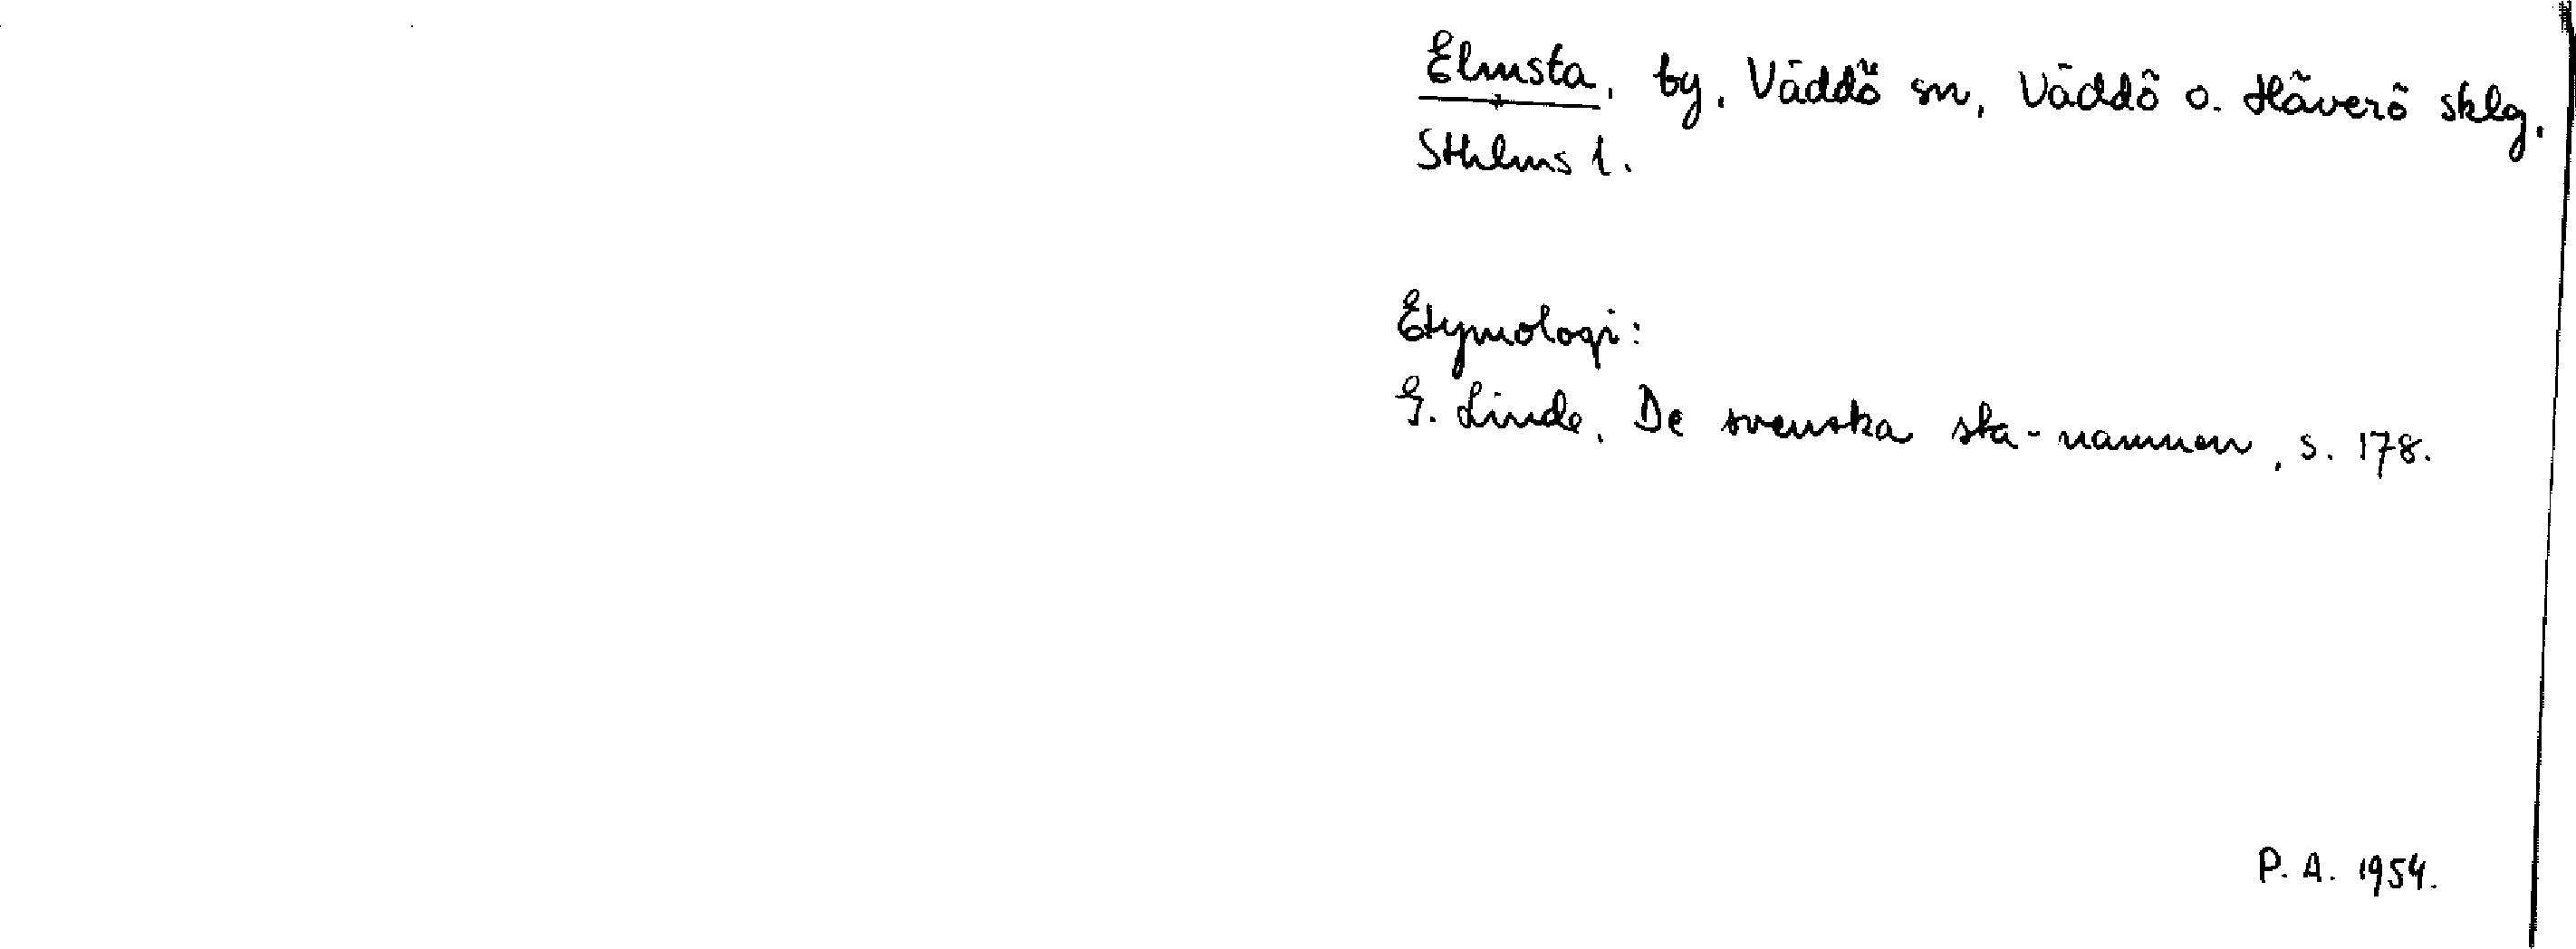 Elmsta, by, Väddö sn, Väddö o. Häverö sklg,
Sthlms l.
Etymologi:
G. Linde, De svenska sta-namnen, s. 178.
P. A. 1954.